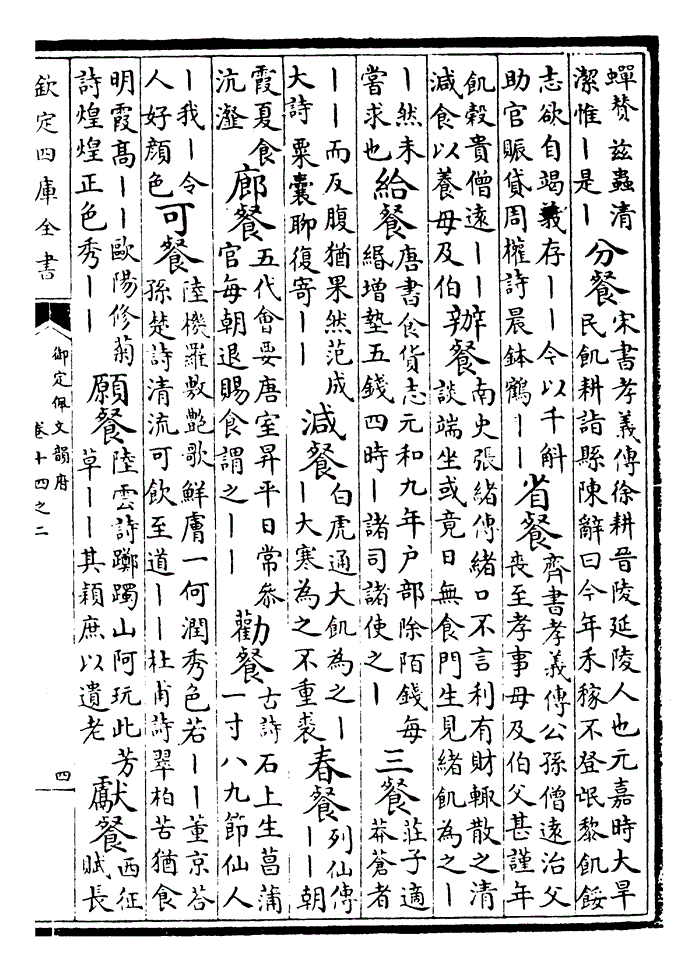 蟬贊 茲蟲清
潔惟｜是｜
分餐
宋書孝義傳徐耕晉陵延陵人也元嘉時大旱
民飢耕詣縣陳辭曰今年禾稼不登氓黎飢餒
志欲自竭義存｜｜今以千斛
助官賑貸周權詩晨鉢鶴｜｜
省餐
齊書孝義傳公孫僧遠治父
喪至孝事母及伯父甚謹年
飢穀貴僧遠｜｜
減食以養母及伯
辦餐
南史張緒傳緒口不言利有財輒散之清
談端坐或竟日無食門生見緒飢為之｜
｜然未
嘗求也
給餐
唐書食貨志元和九年户部除陌錢每
緡增墊五錢四時｜諸司諸使之｜
三餐
莊子適
莽蒼者
｜｜而反腹猶果然范成
大詩 粟囊聊復寄｜｜
減餐
白虎通大飢為之｜
｜大寒為之不重裘
春餐
列仙傳
｜｜朝
霞夏食
沆瀣
廊餐
五代會要唐室昇平日常參
官每朝退賜食謂之｜｜
勸餐
古詩石上生菖蒲
一寸八九節仙人
｜我｜令
人好顔色
可餐
陸機羅敷艷歌鮮膚一何潤秀色若｜｜董京答
孫楚詩清流可飲至道｜｜杜甫詩翠柏苦猶食
明霞高｜｜歐陽修菊
詩煌煌正色秀｜｜
願餐
陸雲詩躑躅山阿玩此芳
草｜｜其穎庶以遺老
獻餐
西征
賦長
欽定四庫全書
御定佩文韻府
卷十四之二
四